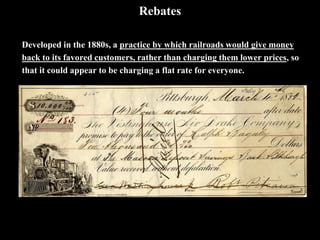 Rebates
Developed in the 1880s, a practice by which railroads would give money
back to its favored customers, rather than charging them lower prices, so
that it could appear to be charging a flat rate for everyone.
Pittsburgh, March
$10,000
months after date
The Westinghouse Air Brake Company
promise to pay to the order of Ralph Bagaley
Ten Thousand Dollars
At The
Value received without defalcation.